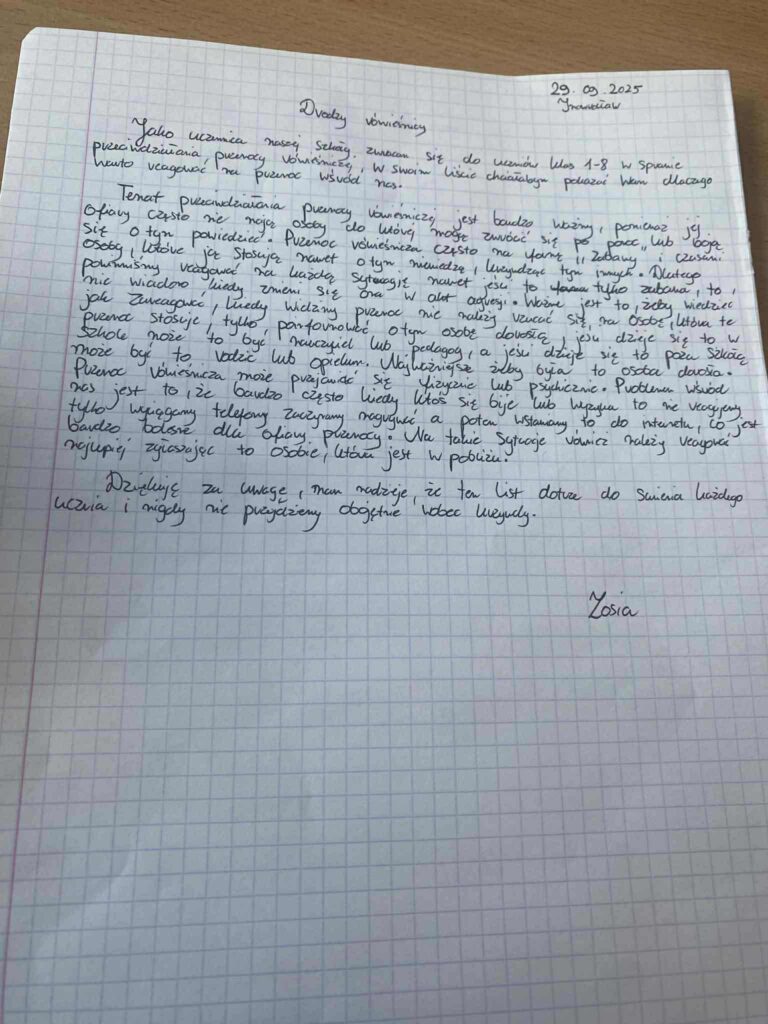 29.09.2025
Drodzy rówieśnicy
Jako uczennica naszej szkoły, zwracam się do uczniów klas 1-8 w sprawie
przeciwdziałania, przemocy rówieśniczej, w swoim liście chciałabym pokazać Wam dlaczego
warto reagować na przemoc wśród nas.
Temat przeciwdziałania przemocy rówieśniczej jest bardzo ważny, ponieważ jej
ofiary często nie mają osoby do której mogą zwrócić się po pomoc, lub boją
się o tym powiedzieć. Przemoc rówieśnicza często ma formę ,,zabawy i czasami
osoby, które ją stosują nawet o tym niewiedzą, krzywdząc tym innych. Dlatego
powinniśmy reagować na każdą sytuację nawet jeśli to tylko zabawa, to,
nie wiadomo, kiedy zmieni się ona w akt agresji. Ważne jest to, żeby wiedzieć
jak zareagować, kiedy widzimy przemoc nie należy rzucać się, na osobę, która tę
przemoc stosuje, tylko, poinformować o tym osobę dorosłą, jeśli dzieje się to w
szkole może to być nauczyciel lub pedagog, a jeśli dzieje się to poza szkołą
może być to rodzic lub opiekun. Najważniejsze żeby była to osoba dorosła.
Przemoc rówieśnicza może przejawiać się fizycznie lub psychicznie. Problemem wśród
nas jest to, że bardzo często kiedy ktoś się bije lub wyzywa to nie reagujemy
tylko wyciągamy telefony zaczynamy nagrywać a potem wstawiamy to do internetu, co jest
bardzo bolesne dla ofiary przemocy. Na takie sytuacje również należy reagować
najlepiej zgłaszając to osobie, która jest w pobliżu.
Dziękuję za uwagę, mam nadzieję, że ten list dotrze do sumienia każdego
ucznia i nigdy nie przejdziemy obojętnie wobec krzywdy.
Zosia